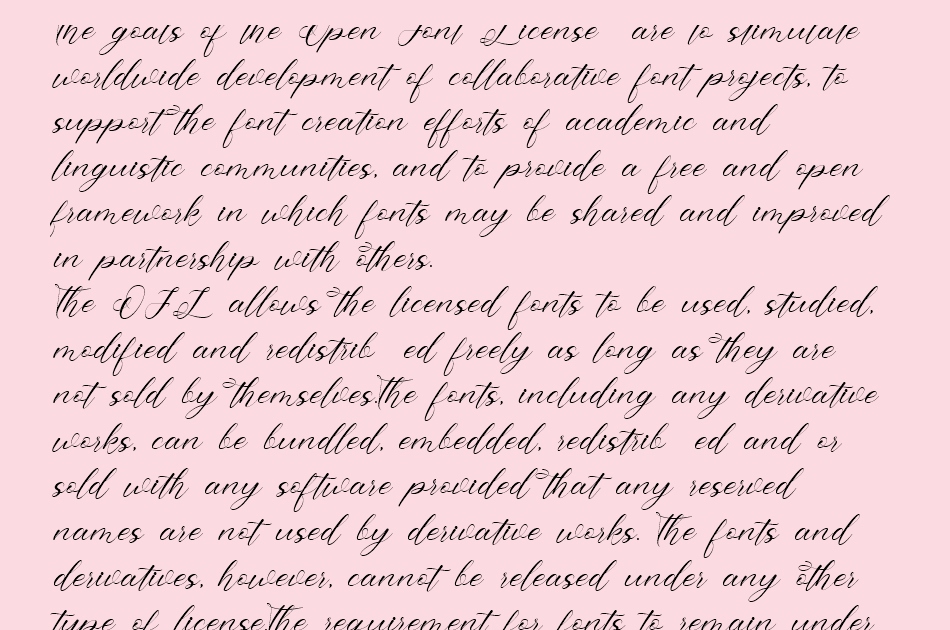 The goals of the Open Font License are to stimulate
worldwide development of collaborative font projects, to
support the font creation efforts of academic and
linguistic communities, and to provide a free and open
framework in which fonts may be shared and improved
in partnership with others.
The OFL allows the licensed fonts to be used, studied,
modified and redistrib ed freely as long as they are
not sold by themselves.The fonts, including any derivative
works, can be bundled, embedded, redistrib ed and or
sold with any software provided that any reserved
names are not used by derivative works. The fonts and
derivatives, however, cannot be released under any other
type of license.The requirement for fonts to remain under